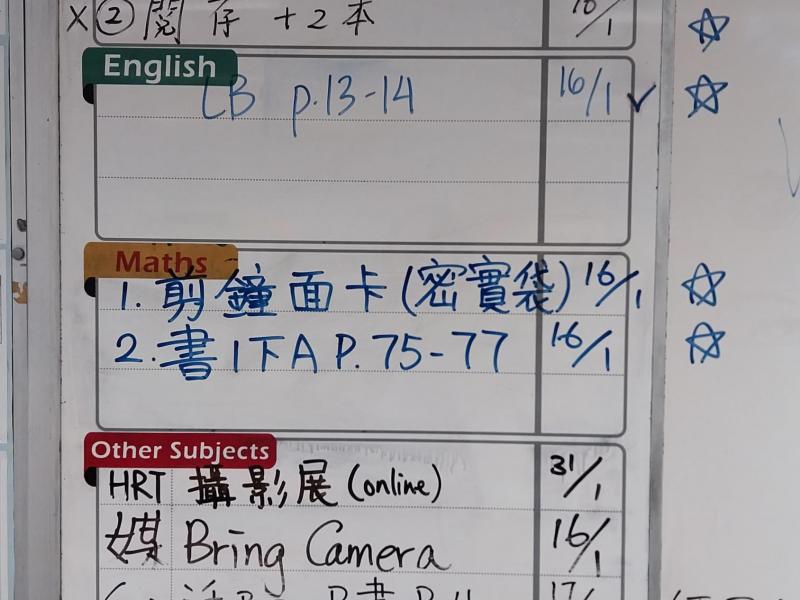 x ② 閱存 +2本 16/1
English
LB p.13-14 16/1 ✓
Maths
1. 剪鐘面卡(密實袋) 16/1
2. 書1下A P.75-77 16/1
Other Subjects
HRT 攝影展(online) 31/1
媒 Bring Camera 16/1
17/